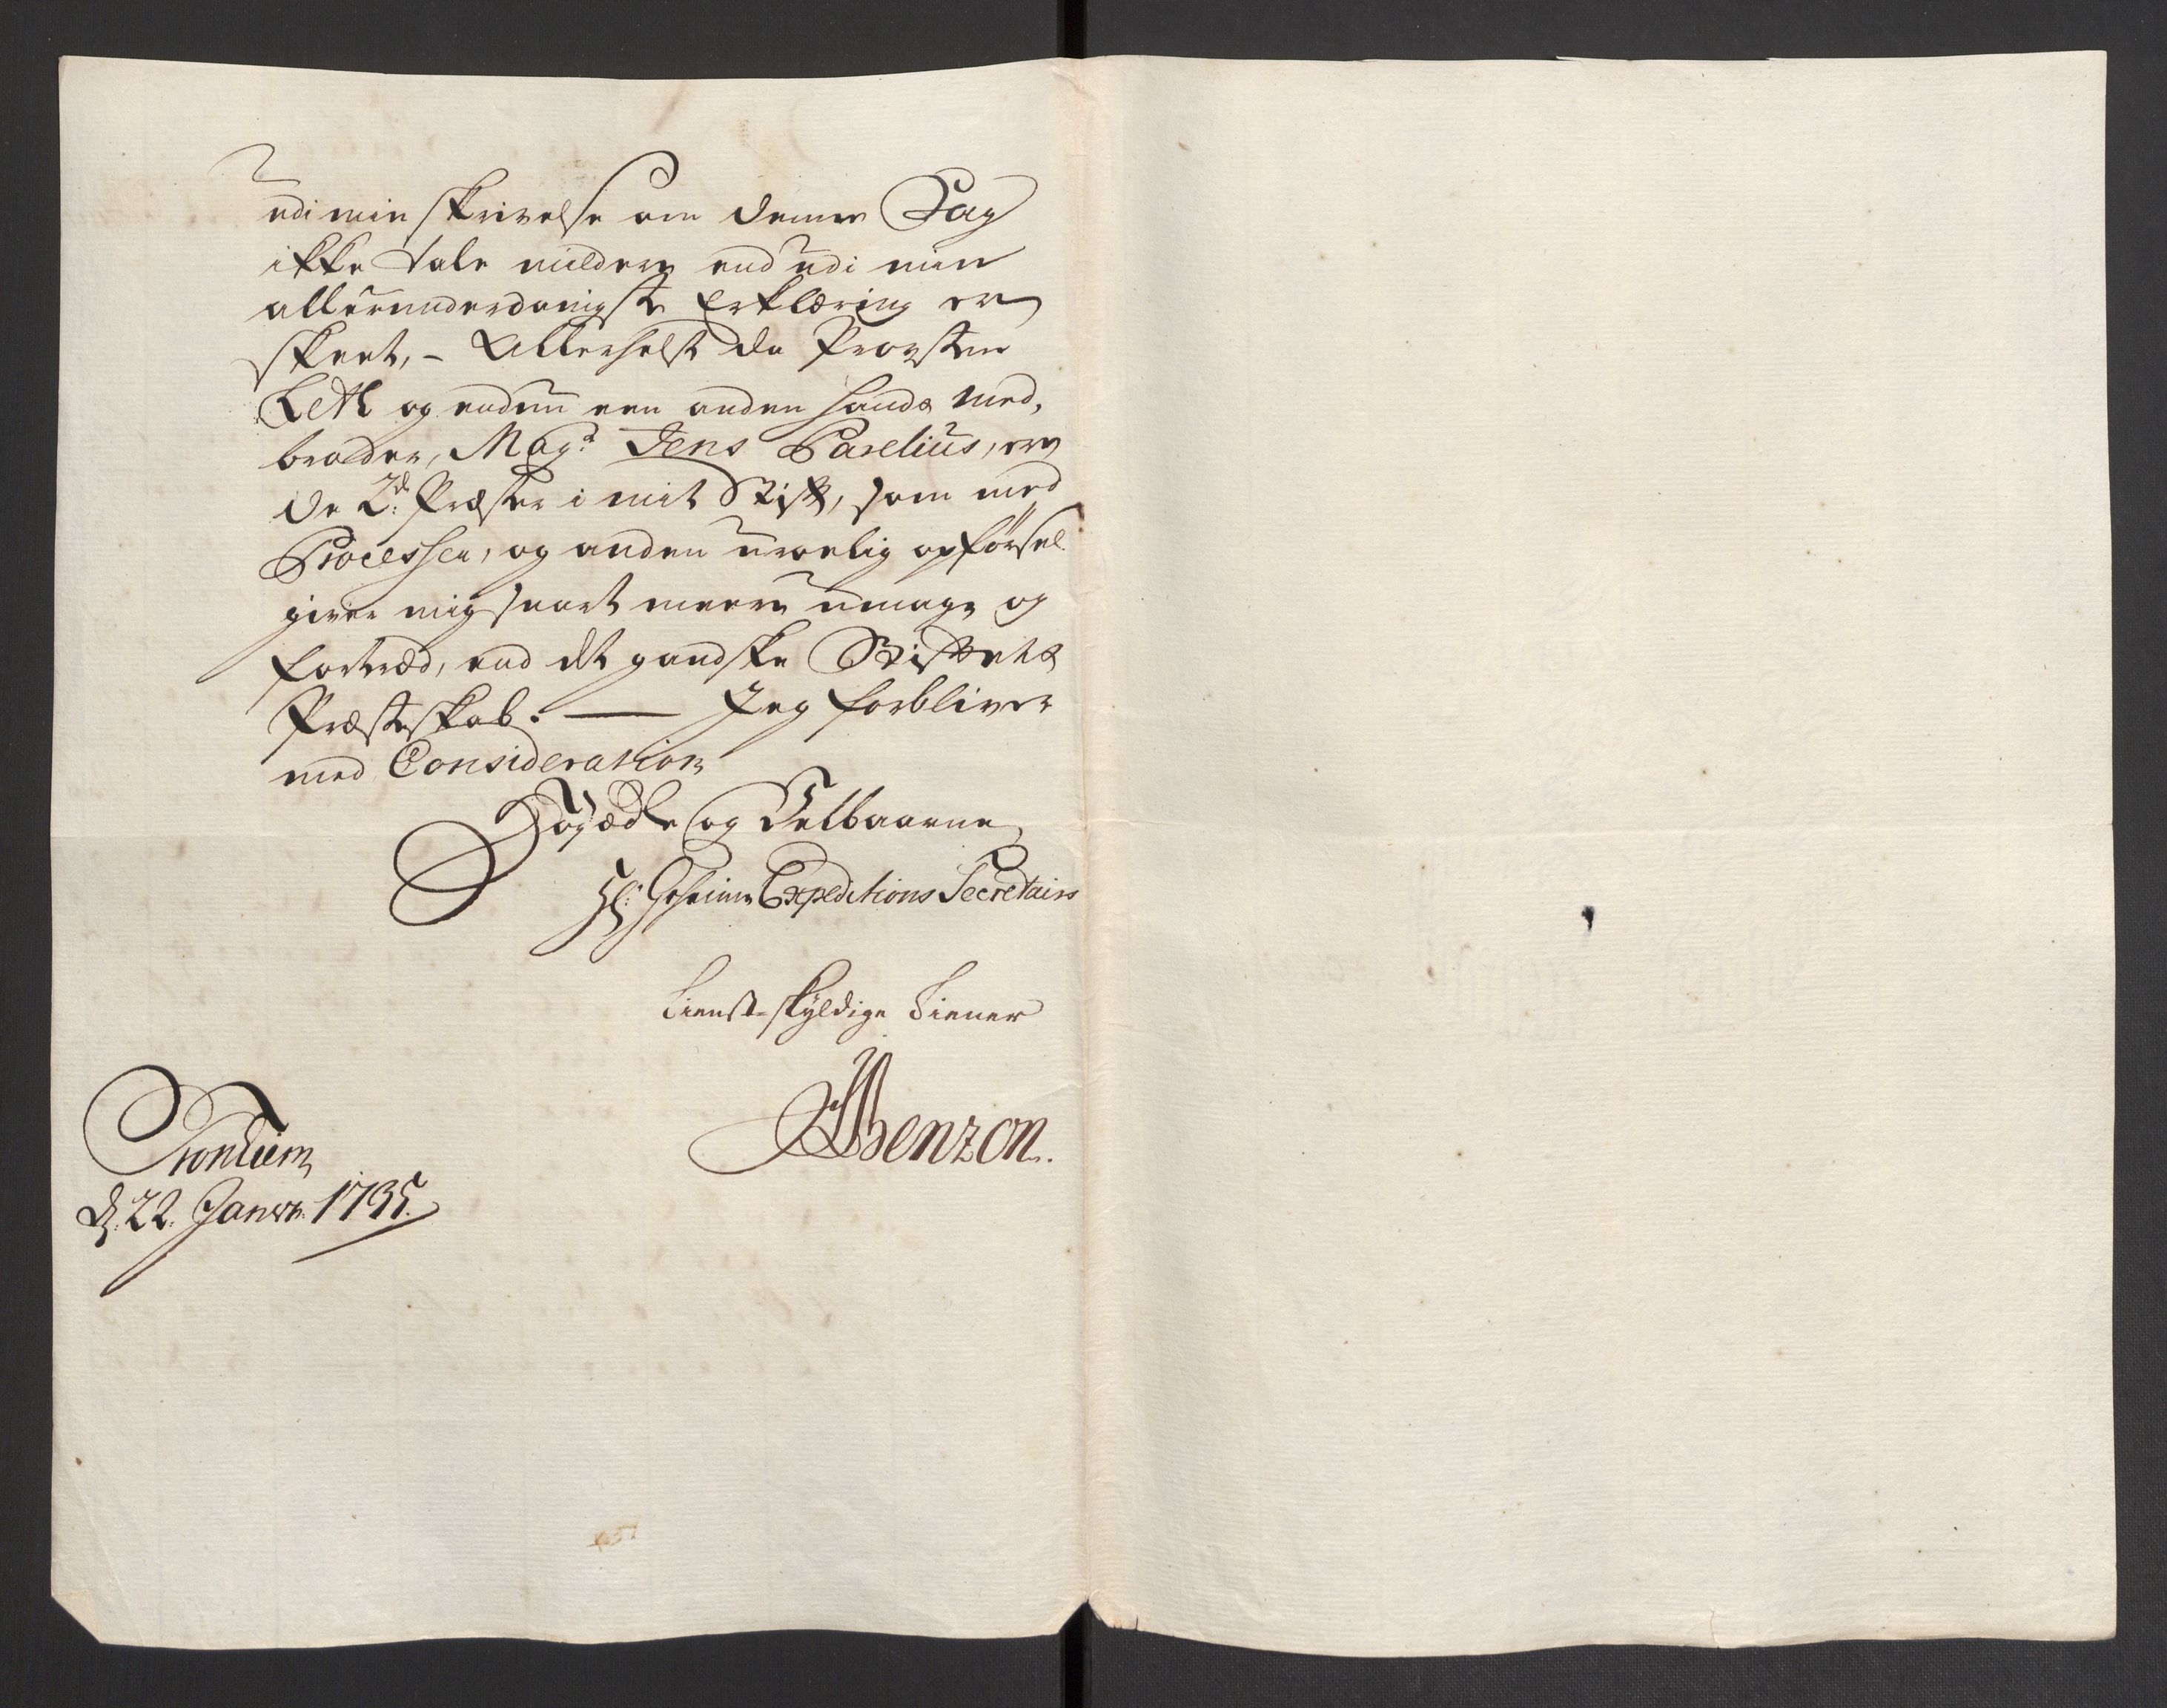 udi min skrivelse om denne Sag
ikke tale mildere end udi min
allerunderdanigste Erklæring er
skeet, – Allerhelst da Provsten
Leth og endnu een anden hands med,
broder, Mag.r Jens Parelius, ere
de 2.de Præster i mit Stift, som med
Processer, og anden uroelig opførsel
giver mig snart meere umage og
fortræd, end dt gandske Stiftets
Præsteskab. — Jeg forbliver
med Consideration
Høyædle og Velbaarne
Hr. Geheime Expeditions Secretairs
Tienst-skyldige Tiener
Benzon.
Trondiem
d. 22. Januar. 1735.